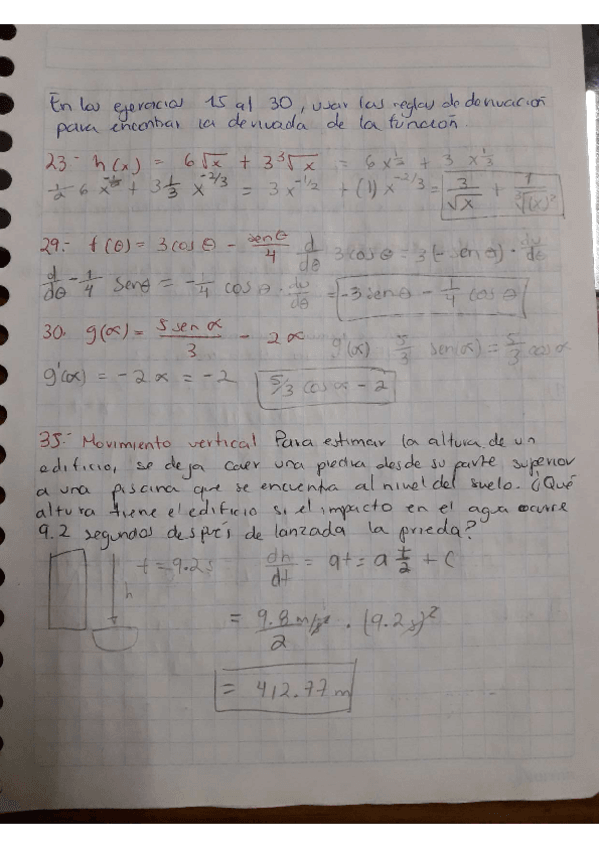 En los ejercicios 15 al 30, usar las reglas de derivación
para encontrar la derivada de la función.
23.- h(x) = 6√x + 3 ³√x = 6x^½ + 3 x^⅓
½ 6 x^-½ + 3 ⅓ x^-2/3 = 3x^-1/2 + (1) x^-2/3 = 3/√x + 1/³√(x)²
29.- f(θ) = 3 cos θ - senθ/4 d/dθ 3 cos θ = 3(- sen θ) · du/dθ
d/dθ - 1/4 senθ = - 1/4 cos θ · du/dθ = -3 sen θ - 1/4 cos θ
30. g(α) = 5 sen α/3 - 2α g'(α) 5/3 sen(α) = 5/3 cos α
g'(α) = -2α = -2 5/3 cos α - 2
35.- Movimiento vertical Para estimar la altura de un
edificio, se deja caer una piedra desde su parte superior
a una piscina que se encuentra al nivel del suelo. ¿Qué
altura tiene el edificio si el impacto en el agua ocurre
9.2 segundos despés de lanzada la prieda?
t = 9.2s dh/dt = at = a t/2 + C
h
= 9.8 m/s²/2 · (9.2s)²
= 412.77 m